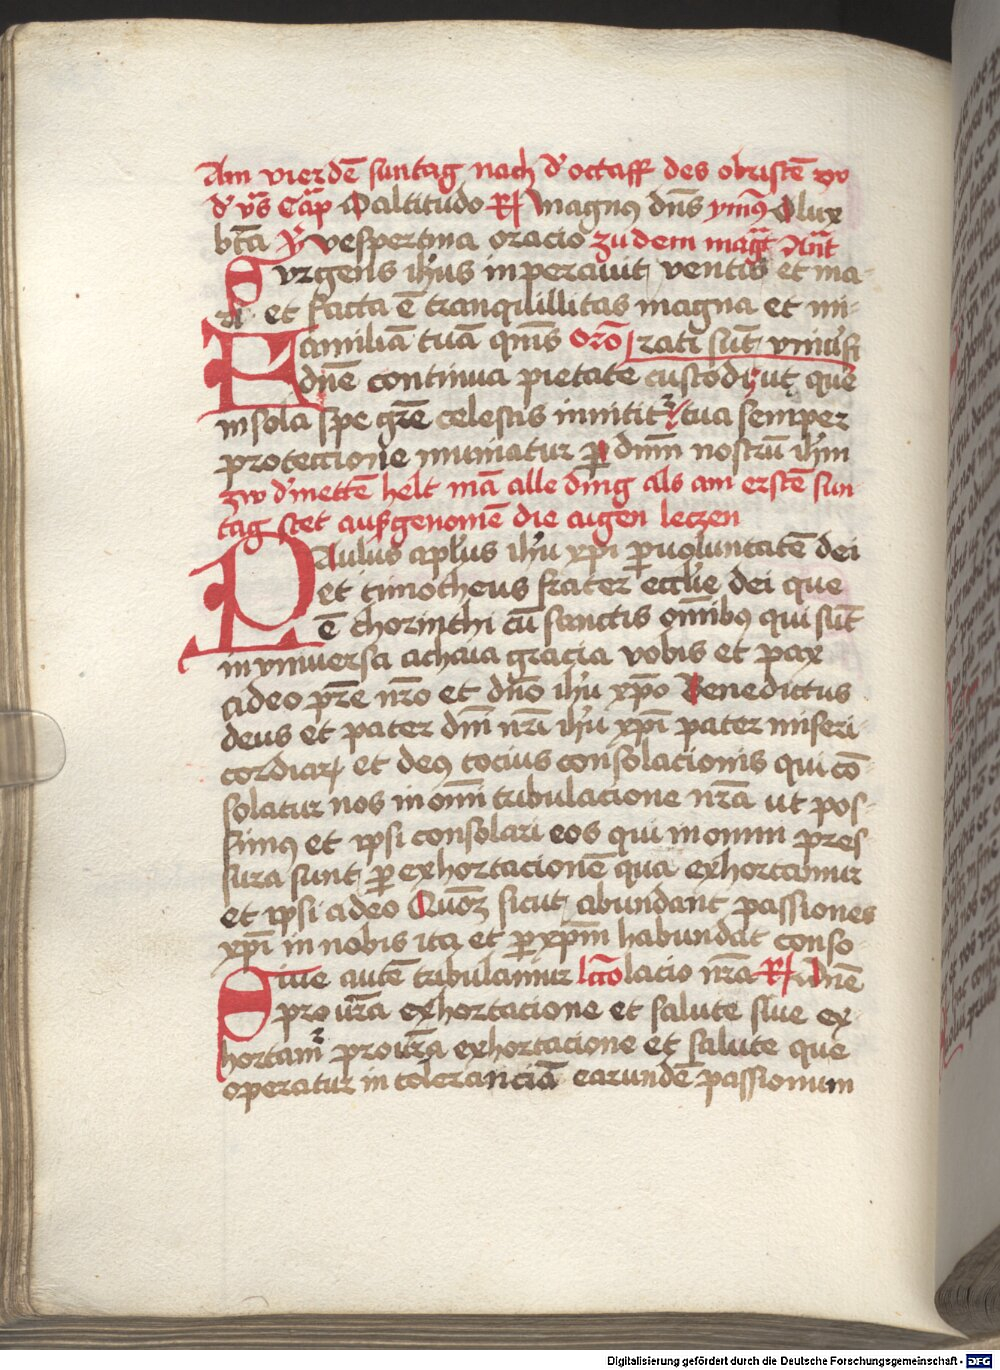 Am vierdē suntag nach d' octaff des obristē vo
d' v̄s Cāp O altitudo R Magnꝯ dn̄s ym̄ꝯ O lux
bt̄a V̓ vespertina oracio zu dem mag̃t An̄t
Surgens ih̄us inperauit ventis et ma-
ri et facta ē tranquillitas magna et mi-
Familiā tuā qm̄s Orō rati sūt vniu'si
dn̄e continua pietate custodi ut que
in sola spe gr̄e celestis innitit᷑ tua semper
proteccione muniatur ꝑ dn̄m nostrū ih̄m
zw d' mettē helt mā alle ding als am erstē sun
tag stet auſgenomē die aigen leczen
Paulus apl̄us ih̄u xp̄i ꝑ uoluntatē dei
et timotheus frater eccl̄ie dei que
ē chorinthi cū sanctis om̄ibꝯ qui sūt
in vniuersa achaia gracia vobis et pax
a deo pr̄e nr̄o et dn̄o ih̄u xp̄o Benedictus
deus et pater dn̄i nr̄i ih̄u xp̄i pater miseri
cordiaꝝ et deꝯ tocius consolacionis qui cō-
solatur nos in om̄i tribulacione nr̄a ut pos-
simꝯ et ipsi consolari eos qui in omni pres-
sura sunt ꝑ exhortacionē qua exhortamur
et ipsi a deo Quōꝫ sicut abundant passiones
xp̄i in nobis ita et ꝑ xp̄m habundat conso-
Siue autē tribulamur lc̄cō lacio nr̄a R Dn̄e
pro ur̄a exhortacione et salute siue ex-
hortam᷑ pro ur̄a exhortacione et salute que
operatur in toleranciā earundē passionum
Digitalisierung gefördert durch die Deutsche Forschungsgemeinschaft - DFG